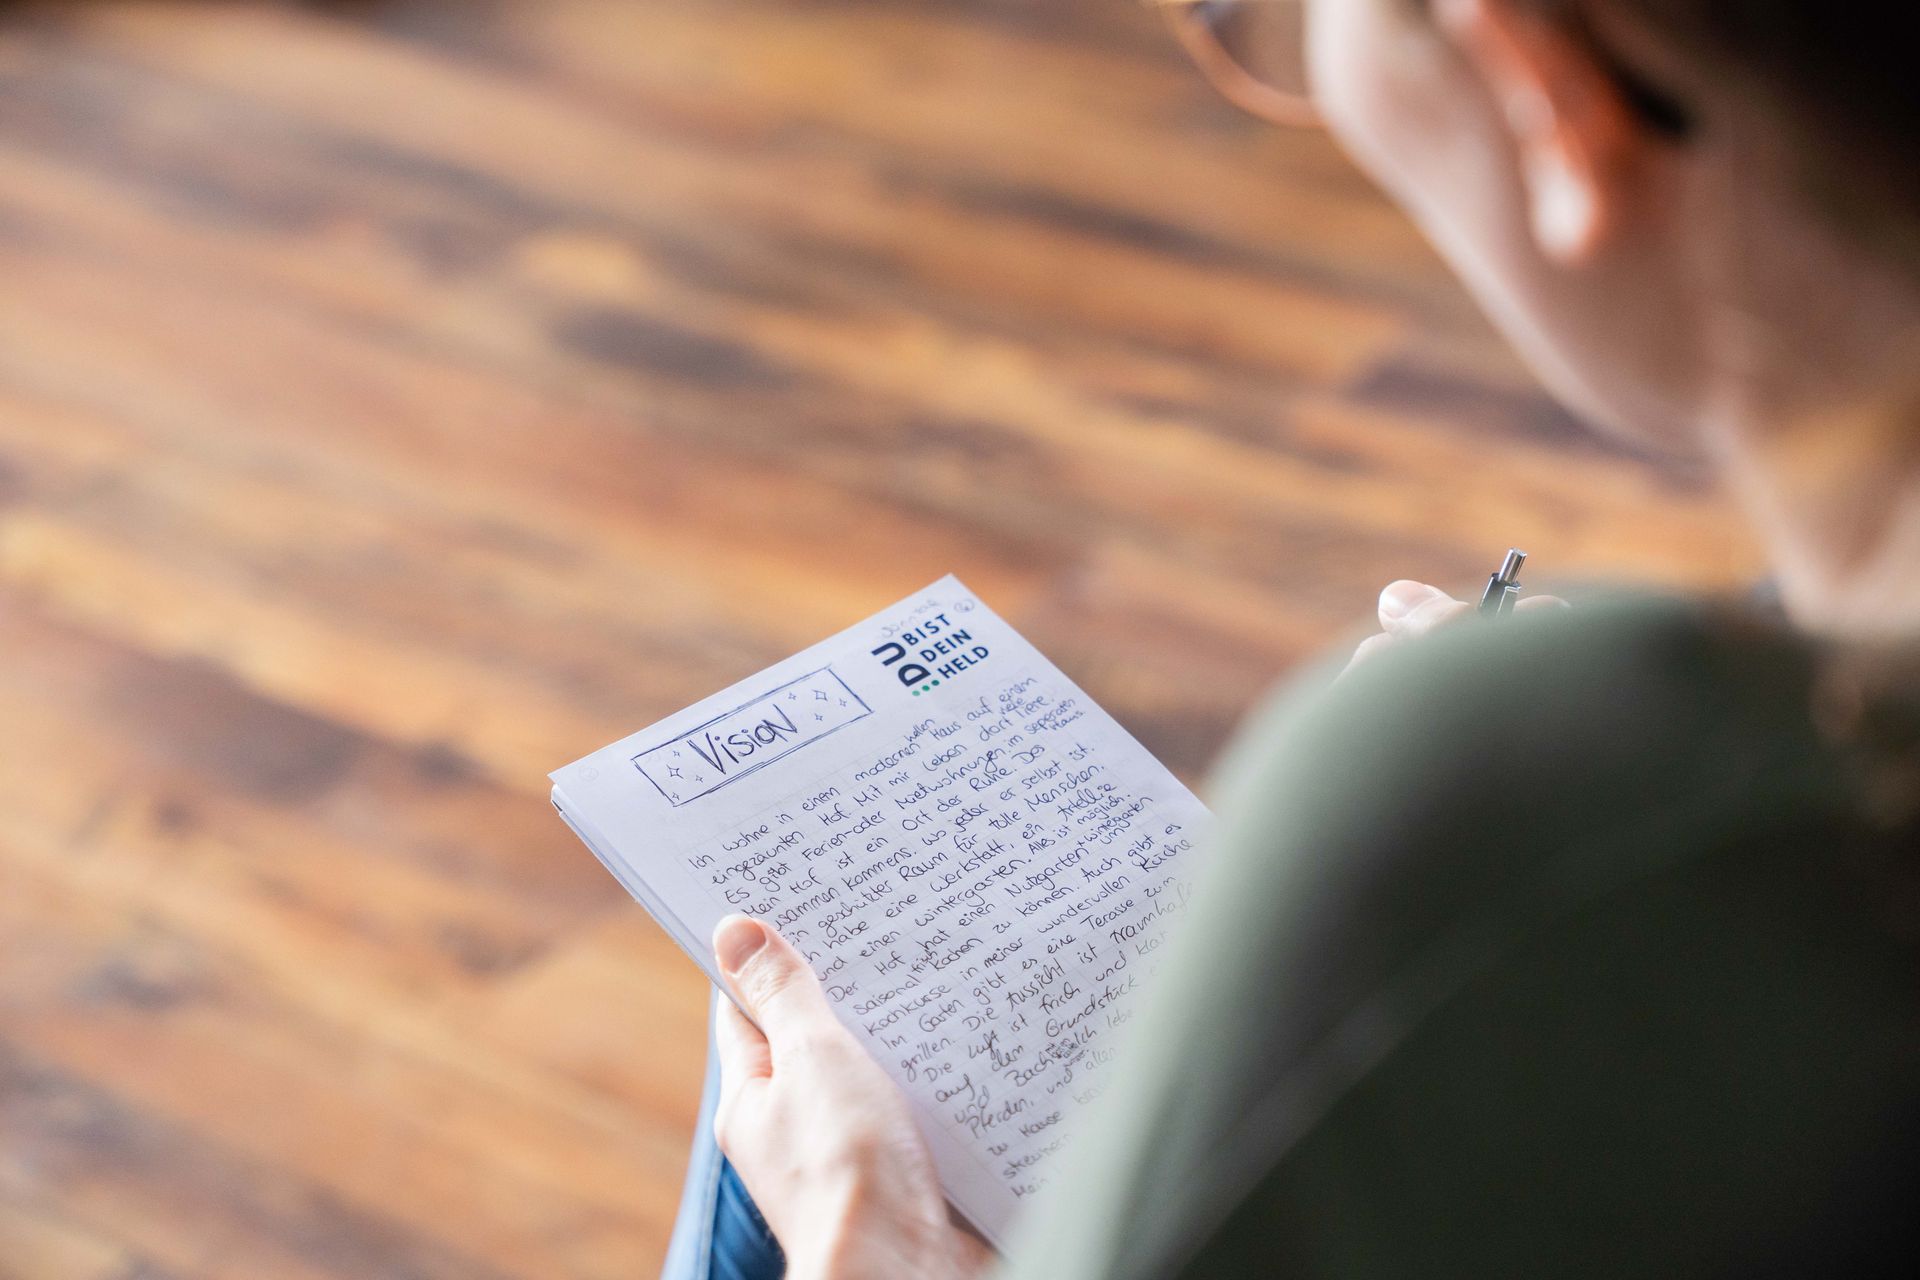 DU BIST
DEIN
HELD
VISION
hellen
Ich wohne in einem modernen Haus auf einem
eingezäunten Hof. Mit mir leben dort viele Tiere.
Es gibt Ferien-oder Mietwohnungen im seperaten Haus.
Mein Hof ist ein Ort der Ruhe. Des
zusammen kommens, wo jeder er selbst ist.
Ein geschützter Raum für tolle Menschen.
Ich habe eine Werkstatt, ein Atellie
und einen Wintergarten. Alles ist möglich.
Der Hof hat einen Nutzgarten + Wintergarten um
saisonal frisch kochen zu können. Auch gibt es
Kochkurse in meiner wundervollen Küche
Im Garten gibt es eine Terasse zum
grillen. Die Aussicht ist traumhaft
Die Luft ist frisch und klar
auf dem Grundstück
und Bach
Pferden, und allen
zu Hause
Mein